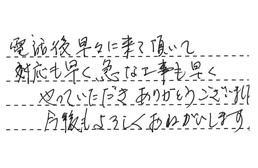 電話後早々に来て頂いて
対応も早く、急な工事も早く
やっていただきありがとうございました
今後もよろしくおねがいします